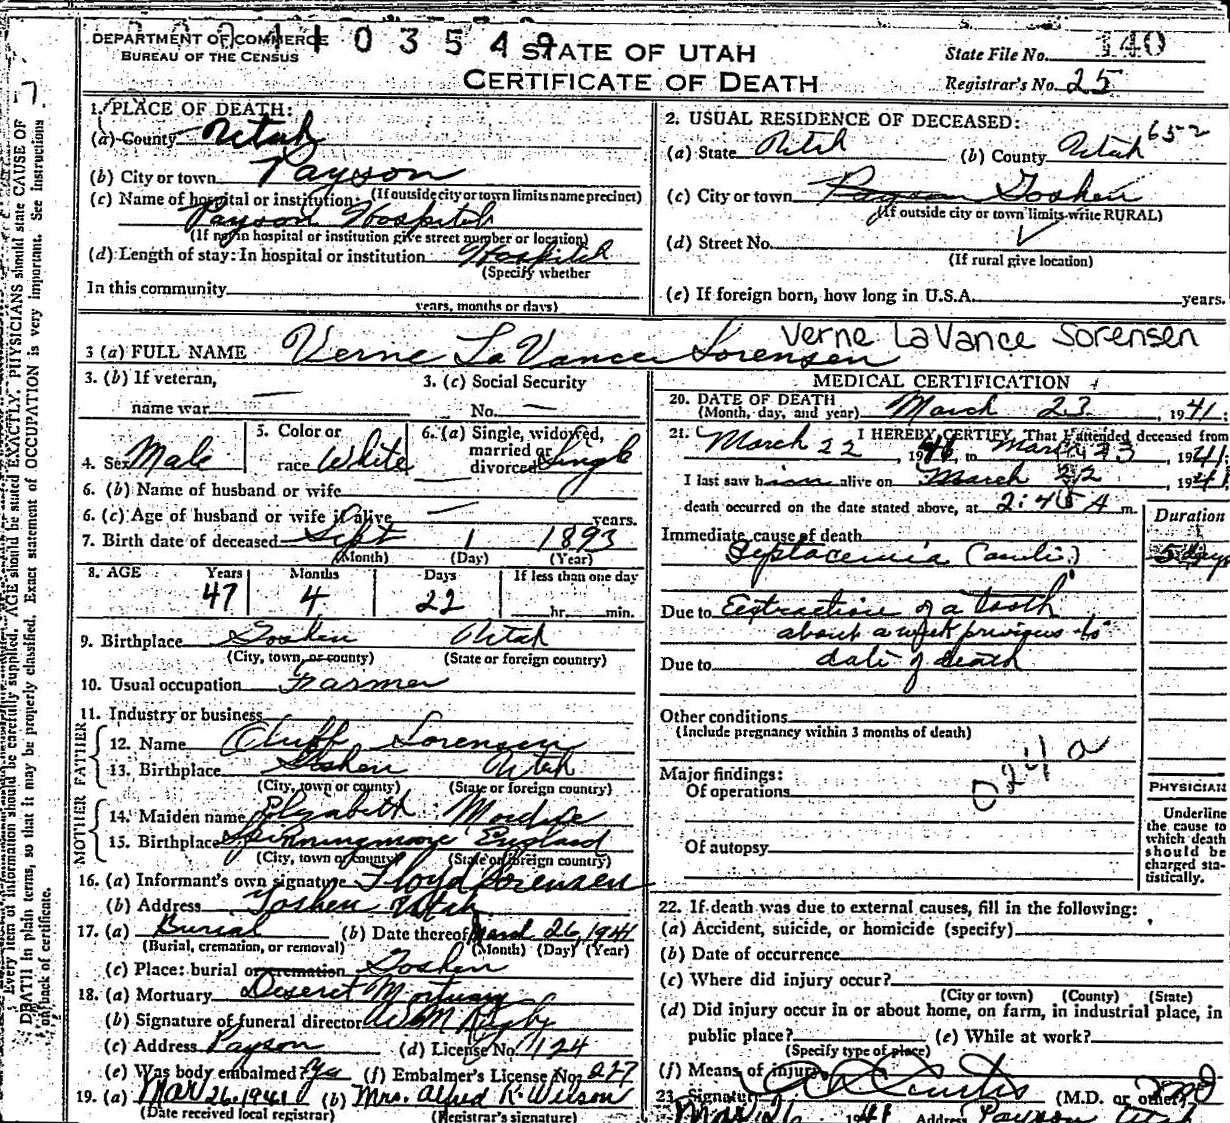 DEPARTMENT OF COMMERCE
BUREAU OF THE CENSUS
03549
STATE OF UTAH
CERTIFICATE OF DEATH
State File No. 140
Registrar's No. 25
1. PLACE OF DEATH:
(a) County Utah
(b) City or town Payson
(If outside city or town limits name precinct)
(c) Name of hospital or institution:
Payson Hospital
(If not in hospital or institution give street number or location)
(d) Length of stay: In hospital or institution Hospital
(Specify whether
In this community
years, months or days)
2. USUAL RESIDENCE OF DECEASED:
(a) State Utah (b) County Utah 652
(c) City or town Payson Goshen
(If outside city or town limits write RURAL)
(d) Street No.
(If rural give location)
(e) If foreign born, how long in U.S.A. years.
3 (a) FULL NAME Verne LaVance Sorensen
Verne LaVance Sorensen
3. (b) If veteran,
name war
3. (c) Social Security
No.
4. Sex Male
5. Color or
race White
6. (a) Single, widowed,
married or
divorced Single
6. (b) Name of husband or wife
6. (c) Age of husband or wife if alive years.
7. Birth date of deceased Sept 1 1893
(Month) (Day) (Year)
8. AGE Years Months Days If less than one day
47 4 22 hr. min.
9. Birthplace Goshen Utah
(City, town, or county) (State or foreign country)
10. Usual occupation Farmer
11. Industry or business
FATHER
12. Name Cluff Sorensen
13. Birthplace Goshen Utah
(City, town or county) (State or foreign country)
MOTHER
14. Maiden name Elizabeth
15. Birthplace England
(City, town or county) (State or foreign country)
16. (a) Informant's own signature Floyd Sorensen
(b) Address Goshen Utah
17. (a) Burial (b) Date thereof March 26, 1941
(Burial, cremation, or removal) (Month) (Day) (Year)
(c) Place: burial or cremation Goshen
18. (a) Mortuary Deseret Mortuary
(b) Signature of funeral director
(c) Address Payson (d) License No. 1124
(e) Was body embalmed? Yes (f) Embalmer's License No. 227
19. (a) Mar 26, 1941 (b) Mrs. Alfred K. Wilson
(Date received local registrar) (Registrar's signature)
MEDICAL CERTIFICATION
20. DATE OF DEATH
(Month, day, and year) March 23, 1941.
21. I HEREBY CERTIFY, That I attended deceased from
March 22, 1941, to March 23, 1941
I last saw him alive on March 22, 1941
death occurred on the date stated above, at 2:45 A m.
Duration
Immediate cause of death
Septacemia 5 days
Due to Extraction of a tooth
about a week previous to
Due to date of death
Other conditions
(Include pregnancy within 3 months of death)
Major findings:
Of operations
024 a
Of autopsy
PHYSICIAN
Underline
the cause to
which death
should be
charged sta-
tistically.
22. If death was due to external causes, fill in the following:
(a) Accident, suicide, or homicide (specify)
(b) Date of occurrence
(c) Where did injury occur?
(City or town) (County) (State)
(d) Did injury occur in or about home, on farm, in industrial place, in
public place? (e) While at work?
(Specify type of place)
(f) Means of injury
23. Signature Curtis (M.D. or other)
Mar 26 1941 Address Payson Utah
Every item of information should be carefully supplied. AGE should be stated EXACTLY. PHYSICIANS should state CAUSE OF
DEATH in plain terms, so that it may be properly classified. Exact statement of OCCUPATION is very important. See instructions
on back of certificate.